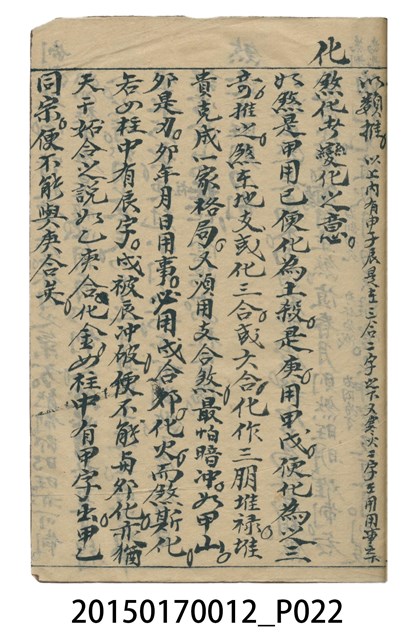 以類推。以上內有申子辰是在三合二字之下又寅火二字在用用事之下
化
煞化者變化之意。
如煞是甲用己便化為土殺是庚用甲戊便化為之三
奇。推之煞在地支或化三合或六合化作三朋堆祿堆
貴克成一家格局。又須用支合煞最怕暗冲。如甲山
卯是刃。卯年月日用事。必用戌合卯化火而殺斯化
若四柱中有辰字。戌被辰冲破便不能與卯化亦猶
天干妬合之說如乙庚合化金四柱中有甲字出甲乙
同宗。便不能與庚合矣
20150170012_P022